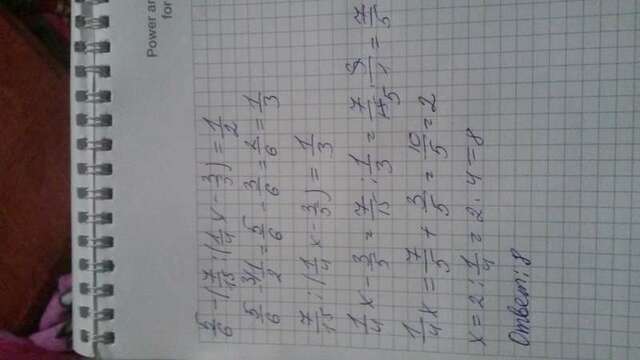 Power an
for
5/6 - (7/15 : (1/4 x - 3/5)) = 1/2
5/6 - 1/2 = 5/6 - 3/6 = 2/6 = 1/3
7/15 : (1/4 x - 3/5) = 1/3
1/4 x - 3/5 = 7/15 : 1/3 = 7/15 · 3/1 = 7/5
1/4 x = 7/5 + 3/5 = 10/5 = 2
x = 2 : 1/4 = 2 · 4 = 8
Ответ: 8